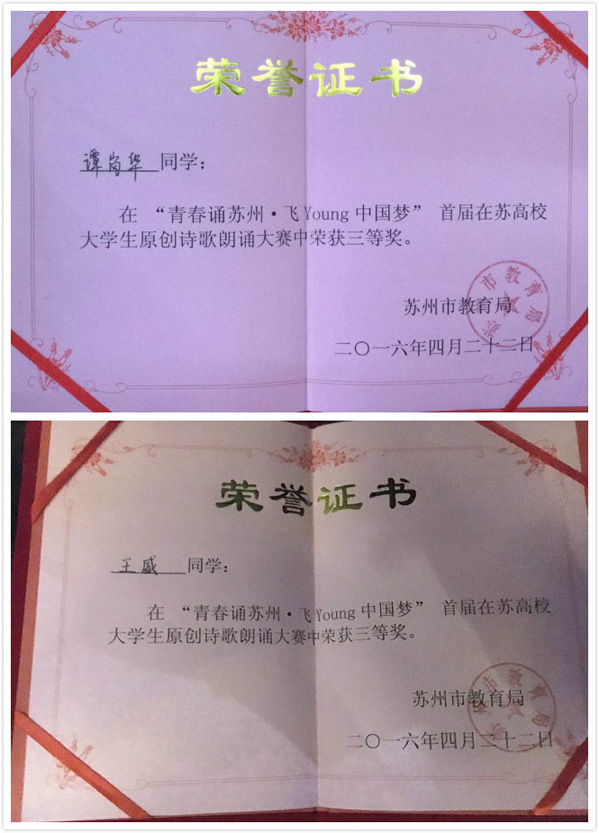 荣誉证书
谭尚华 同学：
在“青春诵苏州·飞Young中国梦”首届在苏高校
大学生原创诗歌朗诵大赛中荣获三等奖。
苏州市教育局
二〇一六年四月二十二日
苏州市教育局
荣誉证书
王威 同学：
在“青春诵苏州·飞Young中国梦”首届在苏高校
大学生原创诗歌朗诵大赛中荣获三等奖。
苏州市教育局
二〇一六年四月二十二日
苏州市教育局